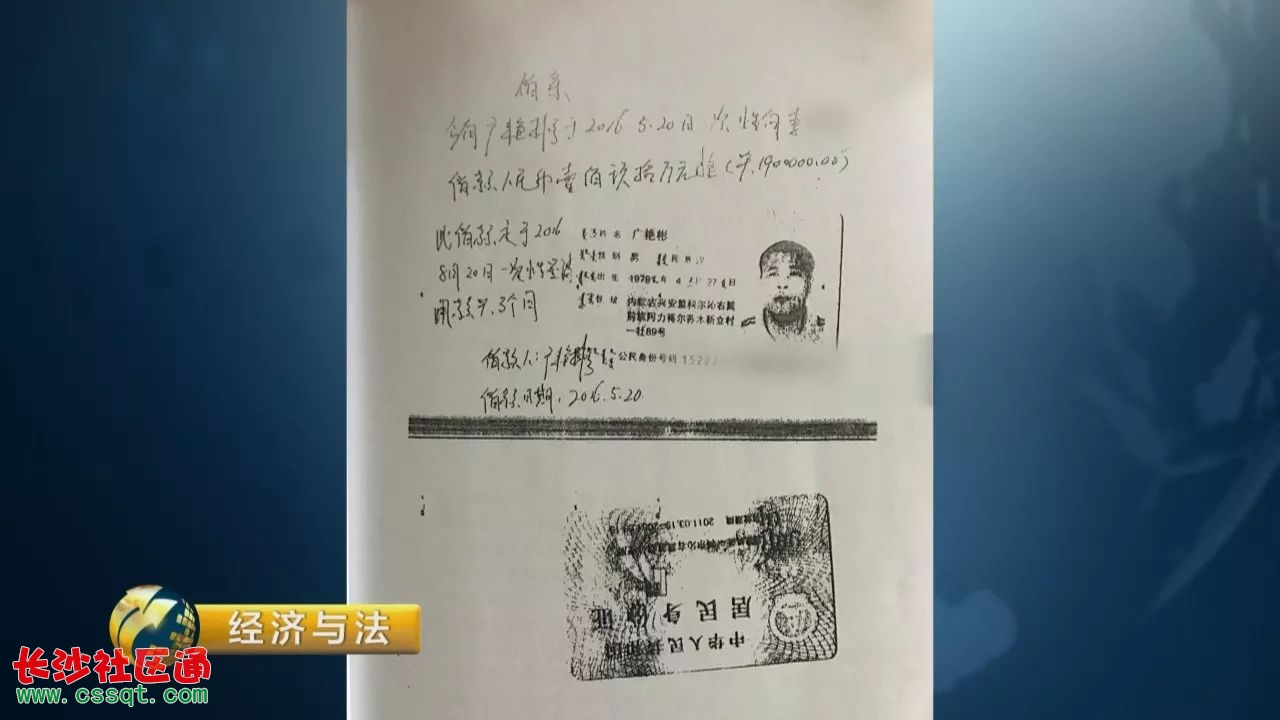 借条
今有广艳彬于2016.5.20日一次性向李
借款人民币壹佰玖拾万元整(¥.1900000.00)
此借款定于2016
8月20日一次性还清
用款共.3个月
借款人:广艳彬
借款日期.2016.5.20.
姓名 广艳彬
性别 男 民族
出生 1979年4月27日
住址 内蒙古兴安盟科尔沁右翼
前旗阿力得尔苏木新立村
一社89号
公民身份号码 15222
2011.03.19
中华人民共和国
居民身份证
经济与法
长沙社区通
www.cssqt.com